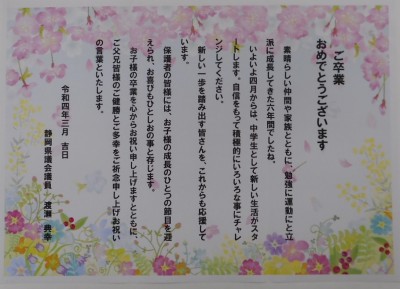 ご卒業
おめでとうございます
素晴らしい仲間や家族とともに、勉強に運動にと立
派に成長してきた六年間でしたね。
いよいよ四月からは、中学生として新しい生活がスタ
ートします。自信をもって積極的にいろいろな事にチャレ
ンジしてください。
新しい一歩を踏み出す皆さんを、これからも応援して
います。
保護者の皆様には、お子様の成長のひとつの節目を迎
えられ、お喜びもひとしおの事と存じます。
お子様の卒業を心からお祝い申し上げますとともに、
ご父兄皆様のご健勝とご多幸をご祈念申し上げお祝い
の言葉といたします。
令和四年三月 吉日
静岡県議会議員 渡瀬 典幸